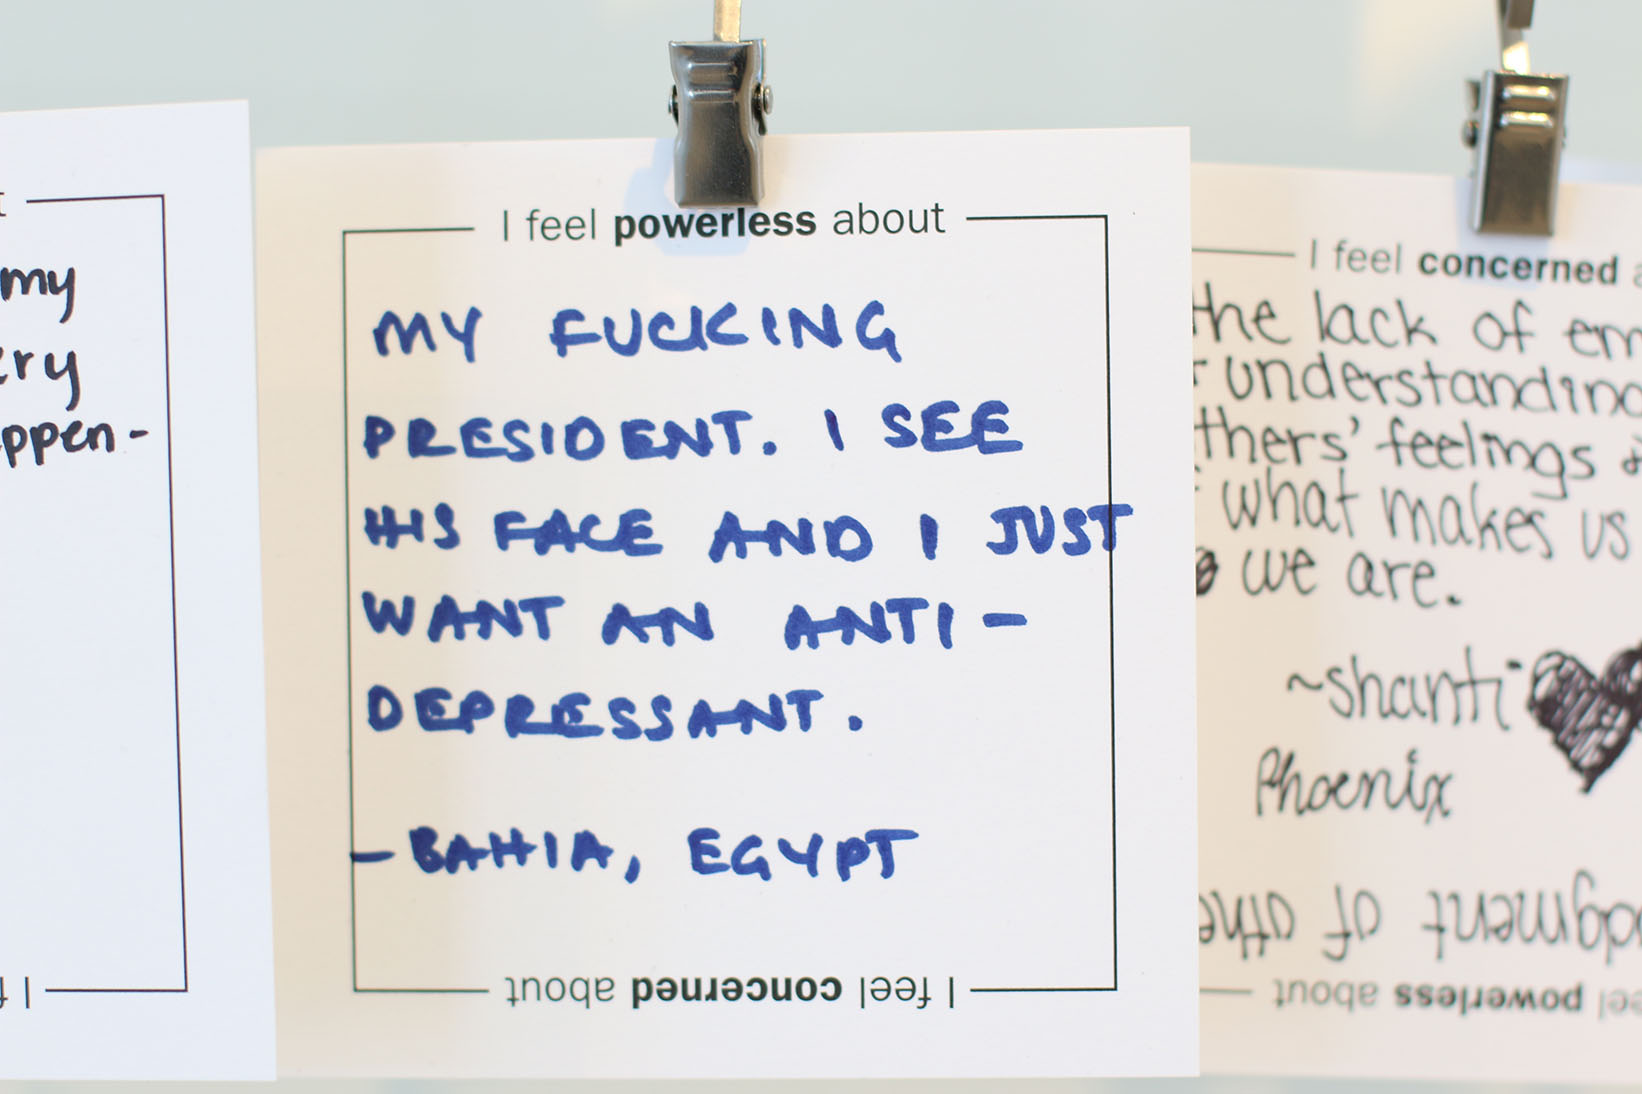 my
ery
ppen-
I feel powerless about
MY FUCKING
PRESIDENT. I SEE
HIS FACE AND I JUST
WANT AN ANTI-
DEPRESSANT.
-BAHIA, EGYPT
I feel concerned about
I feel concerned
the lack of em
understanding
thers' feelings &
what makes us
we are.
~Shanti
Phoenix
dgment of othe
feel powerless about